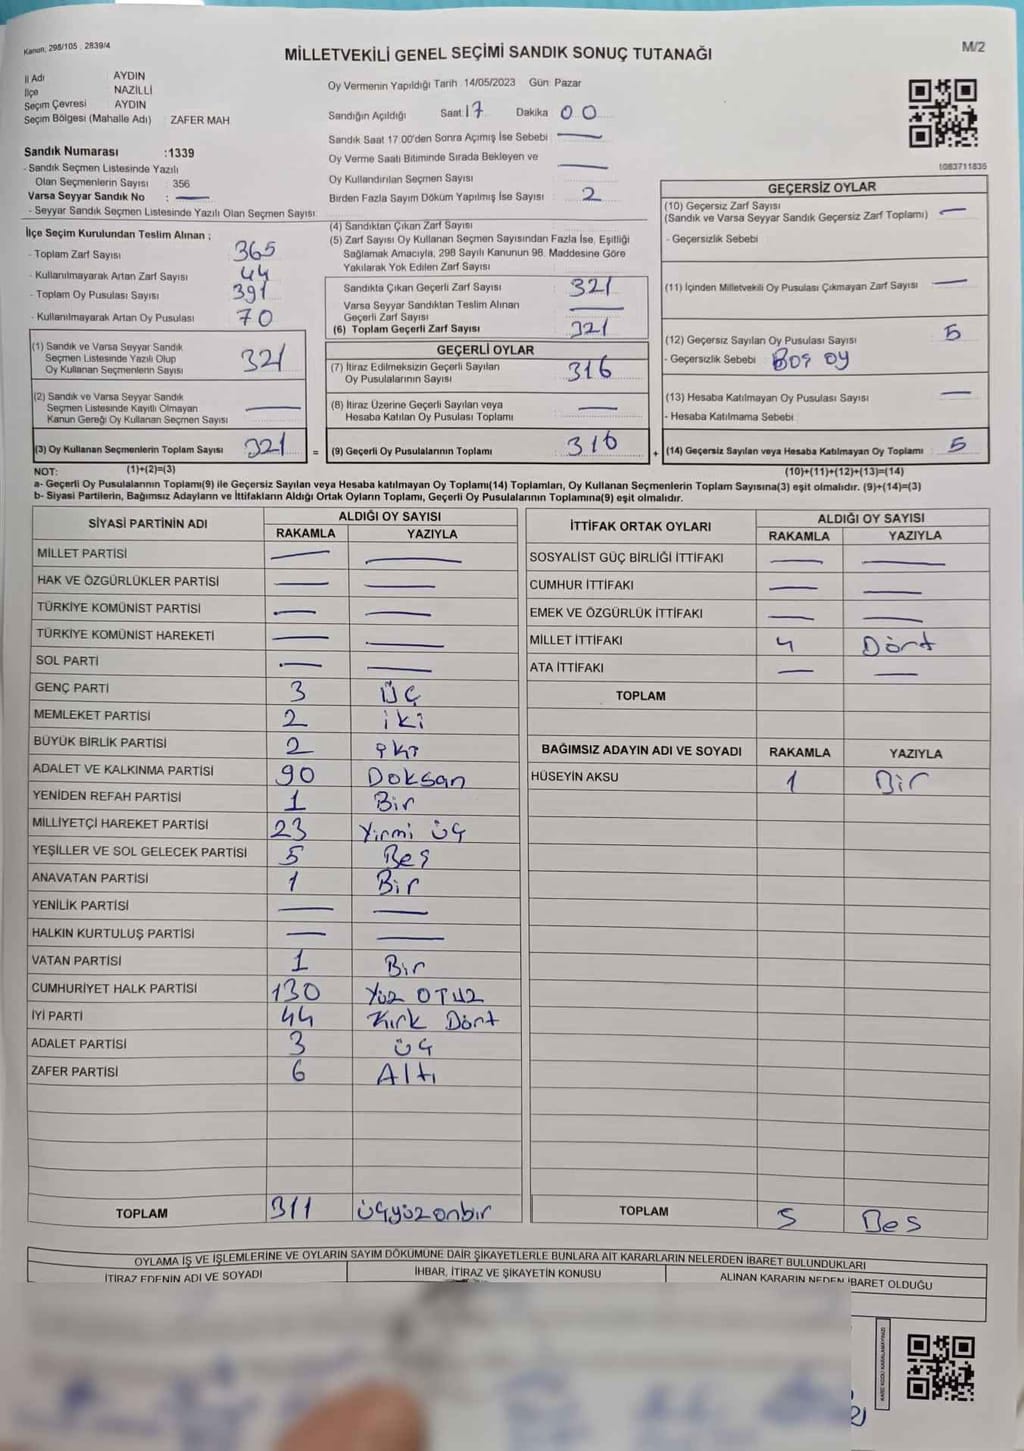 Kanun, 298/105 , 2839/4
M/2
MİLLETVEKİLİ GENEL SEÇİMİ SANDIK SONUÇ TUTANAĞI
İl Adı AYDIN
İlçe NAZİLLİ
Seçim Çevresi AYDIN
Seçim Bölgesi (Mahalle Adı) ZAFER MAH
Sandık Numarası :1339
- Sandık Seçmen Listesinde Yazılı
Olan Seçmenlerin Sayısı 356
Varsa Seyyar Sandık No : —
- Seyyar Sandık Seçmen Listesinde Yazılı Olan Seçmen Sayısı
İlçe Seçim Kurulundan Teslim Alınan ;
- Toplam Zarf Sayısı 365
- Kullanılmayarak Artan Zarf Sayısı 44
- Toplam Oy Pusulası Sayısı 391
- Kullanılmayarak Artan Oy Pusulası 70
(1) Sandık ve Varsa Seyyar Sandık
Seçmen Listesinde Yazılı Olup
Oy Kullanan Seçmenlerin Sayısı 321
(2) Sandık ve Varsa Seyyar Sandık
Seçmen Listesinde Kayıtlı Olmayan
Kanun Gereği Oy Kullanan Seçmen Sayısı —
(3) Oy Kullanan Seçmenlerin Toplam Sayısı 321 =
Oy Vermenin Yapıldığı Tarih 14/05/2023 Gün Pazar
Sandığın Açıldığı Saat 17 Dakika 00
Sandık Saat 17.00'den Sonra Açımış İse Sebebi —
Oy Verme Saati Bitiminde Sırada Bekleyen ve
Oy Kullandırılan Seçmen Sayısı —
Birden Fazla Sayım Döküm Yapılmış İse Sayısı 2
(4) Sandıktan Çıkan Zarf Sayısı
(5) Zarf Sayısı Oy Kullanan Seçmen Sayısından Fazla İse, Eşitliği
Sağlamak Amacıyla, 298 Sayılı Kanunun 98. Maddesine Göre
Yakılarak Yok Edilen Zarf Sayısı
Sandıkta Çıkan Geçerli Zarf Sayısı 321
Varsa Seyyar Sandıktan Teslim Alınan
Geçerli Zarf Sayısı —
(6) Toplam Geçerli Zarf Sayısı 321
GEÇERLİ OYLAR
(7) İtiraz Edilmeksizin Geçerli Sayılan
Oy Pusulalarının Sayısı 316
(8) İtiraz Üzerine Geçerli Sayılan veya
Hesaba Katılan Oy Pusulası Toplamı —
(9) Geçerli Oy Pusulalarının Toplamı 316 +
1083711835
GEÇERSİZ OYLAR
(10) Geçersiz Zarf Sayısı —
(Sandık ve Varsa Seyyar Sandık Geçersiz Zarf Toplamı)
- Geçersizlik Sebebi
(11) İçinden Milletvekili Oy Pusulası Çıkmayan Zarf Sayısı —
(12) Geçersiz Sayılan Oy Pusulası Sayısı 5
- Geçersizlik Sebebi Boş oy
(13) Hesaba Katılmayan Oy Pusulası Sayısı —
- Hesaba Katılmama Sebebi
(14) Geçersiz Sayılan veya Hesaba Katılmayan Oy Toplamı 5
NOT: (1)+(2)=(3) (10)+(11)+(12)+(13)=(14)
a- Geçerli Oy Pusulalarının Toplamı(9) ile Geçersiz Sayılan veya Hesaba katılmayan Oy Toplamı(14) Toplamları, Oy Kullanan Seçmenlerin Toplam Sayısına(3) eşit olmalıdır. (9)+(14)=(3)
b- Siyasi Partilerin, Bağımsız Adayların ve İttifakların Aldığı Ortak Oyların Toplamı, Geçerli Oy Pusulalarının Toplamına(9) eşit olmalıdır.
SİYASİ PARTİNİN ADI ALDIĞI OY SAYISI
RAKAMLA YAZIYLA
MİLLET PARTİSİ — —
HAK VE ÖZGÜRLÜKLER PARTİSİ — —
TÜRKİYE KOMÜNİST PARTİSİ — —
TÜRKİYE KOMÜNİST HAREKETİ — —
SOL PARTİ — —
GENÇ PARTİ 3 Üç
MEMLEKET PARTİSİ 2 iki
BÜYÜK BİRLİK PARTİSİ 2 iki
ADALET VE KALKINMA PARTİSİ 90 Doksan
YENİDEN REFAH PARTİSİ 1 Bir
MİLLİYETÇİ HAREKET PARTİSİ 23 Yirmi üç
YEŞİLLER VE SOL GELECEK PARTİSİ 5 Beş
ANAVATAN PARTİSİ 1 Bir
YENİLİK PARTİSİ — —
HALKIN KURTULUŞ PARTİSİ — —
VATAN PARTİSİ 1 Bir
CUMHURİYET HALK PARTİSİ 130 Yüz OTUZ
İYİ PARTİ 44 Kırk Dört
ADALET PARTİSİ 3 üç
ZAFER PARTİSİ 6 Altı
TOPLAM 311 üçyüzonbir
İTTİFAK ORTAK OYLARI ALDIĞI OY SAYISI
RAKAMLA YAZIYLA
SOSYALİST GÜÇ BİRLİĞİ İTTİFAKI — —
CUMHUR İTTİFAKI — —
EMEK VE ÖZGÜRLÜK İTTİFAKI — —
MİLLET İTTİFAKI 4 Dört
ATA İTTİFAKI — —
TOPLAM
BAĞIMSIZ ADAYIN ADI VE SOYADI RAKAMLA YAZIYLA
HÜSEYİN AKSU 1 Bir
TOPLAM 5 Beş
OYLAMA İŞ VE İŞLEMLERİNE VE OYLARIN SAYIM DÖKÜMÜNE DAİR ŞİKAYETLERLE BUNLARA AİT KARARLARIN NELERDEN İBARET BULUNDUKLARI
İTİRAZ EDENİN ADI VE SOYADI İHBAR, İTİRAZ VE ŞİKAYETİN KONUSU ALINAN KARARIN NEDEN İBARET OLDUĞU